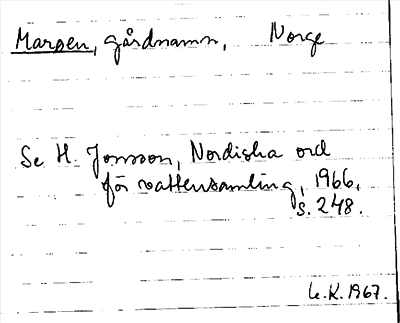 Marsen, gårdnamn, Norge
Se H. Jonsson, Nordiska ord
för vattensamling, 1966,
s. 248.
L.K. 1967.